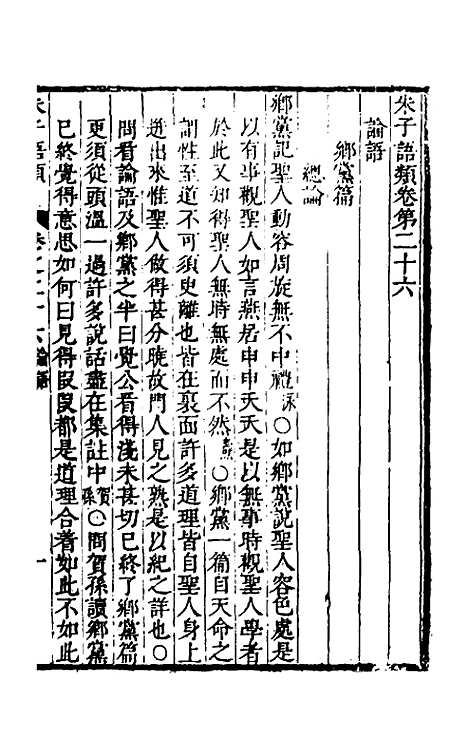 朱子語類卷第二十六
論語
鄉黨篇
總論
鄉黨記聖人動容周旋無不中禮泳〇如鄉黨說聖人容色處是
以有事觀聖人如言燕居申申夭夭是以無事時觀聖人學者
於此又知得聖人無時無處而不然〇鄉黨一篇自天命之
謂性至道不可須臾離也皆在裏面許多道理皆自聖人身上
迸出來惟聖人做得甚分曉故門人見之熟是以紀之詳也〇
問看論語及鄉黨之半曰覽公看得淺未甚切己終了鄉黨篇
更須從頭溫一過許多說話盡在集註中賀孫〇問賀孫讀鄉黨
已終覺得意思如何曰見得段段都是道理合著如此不如此
朱子語類 卷之二十六論語 一